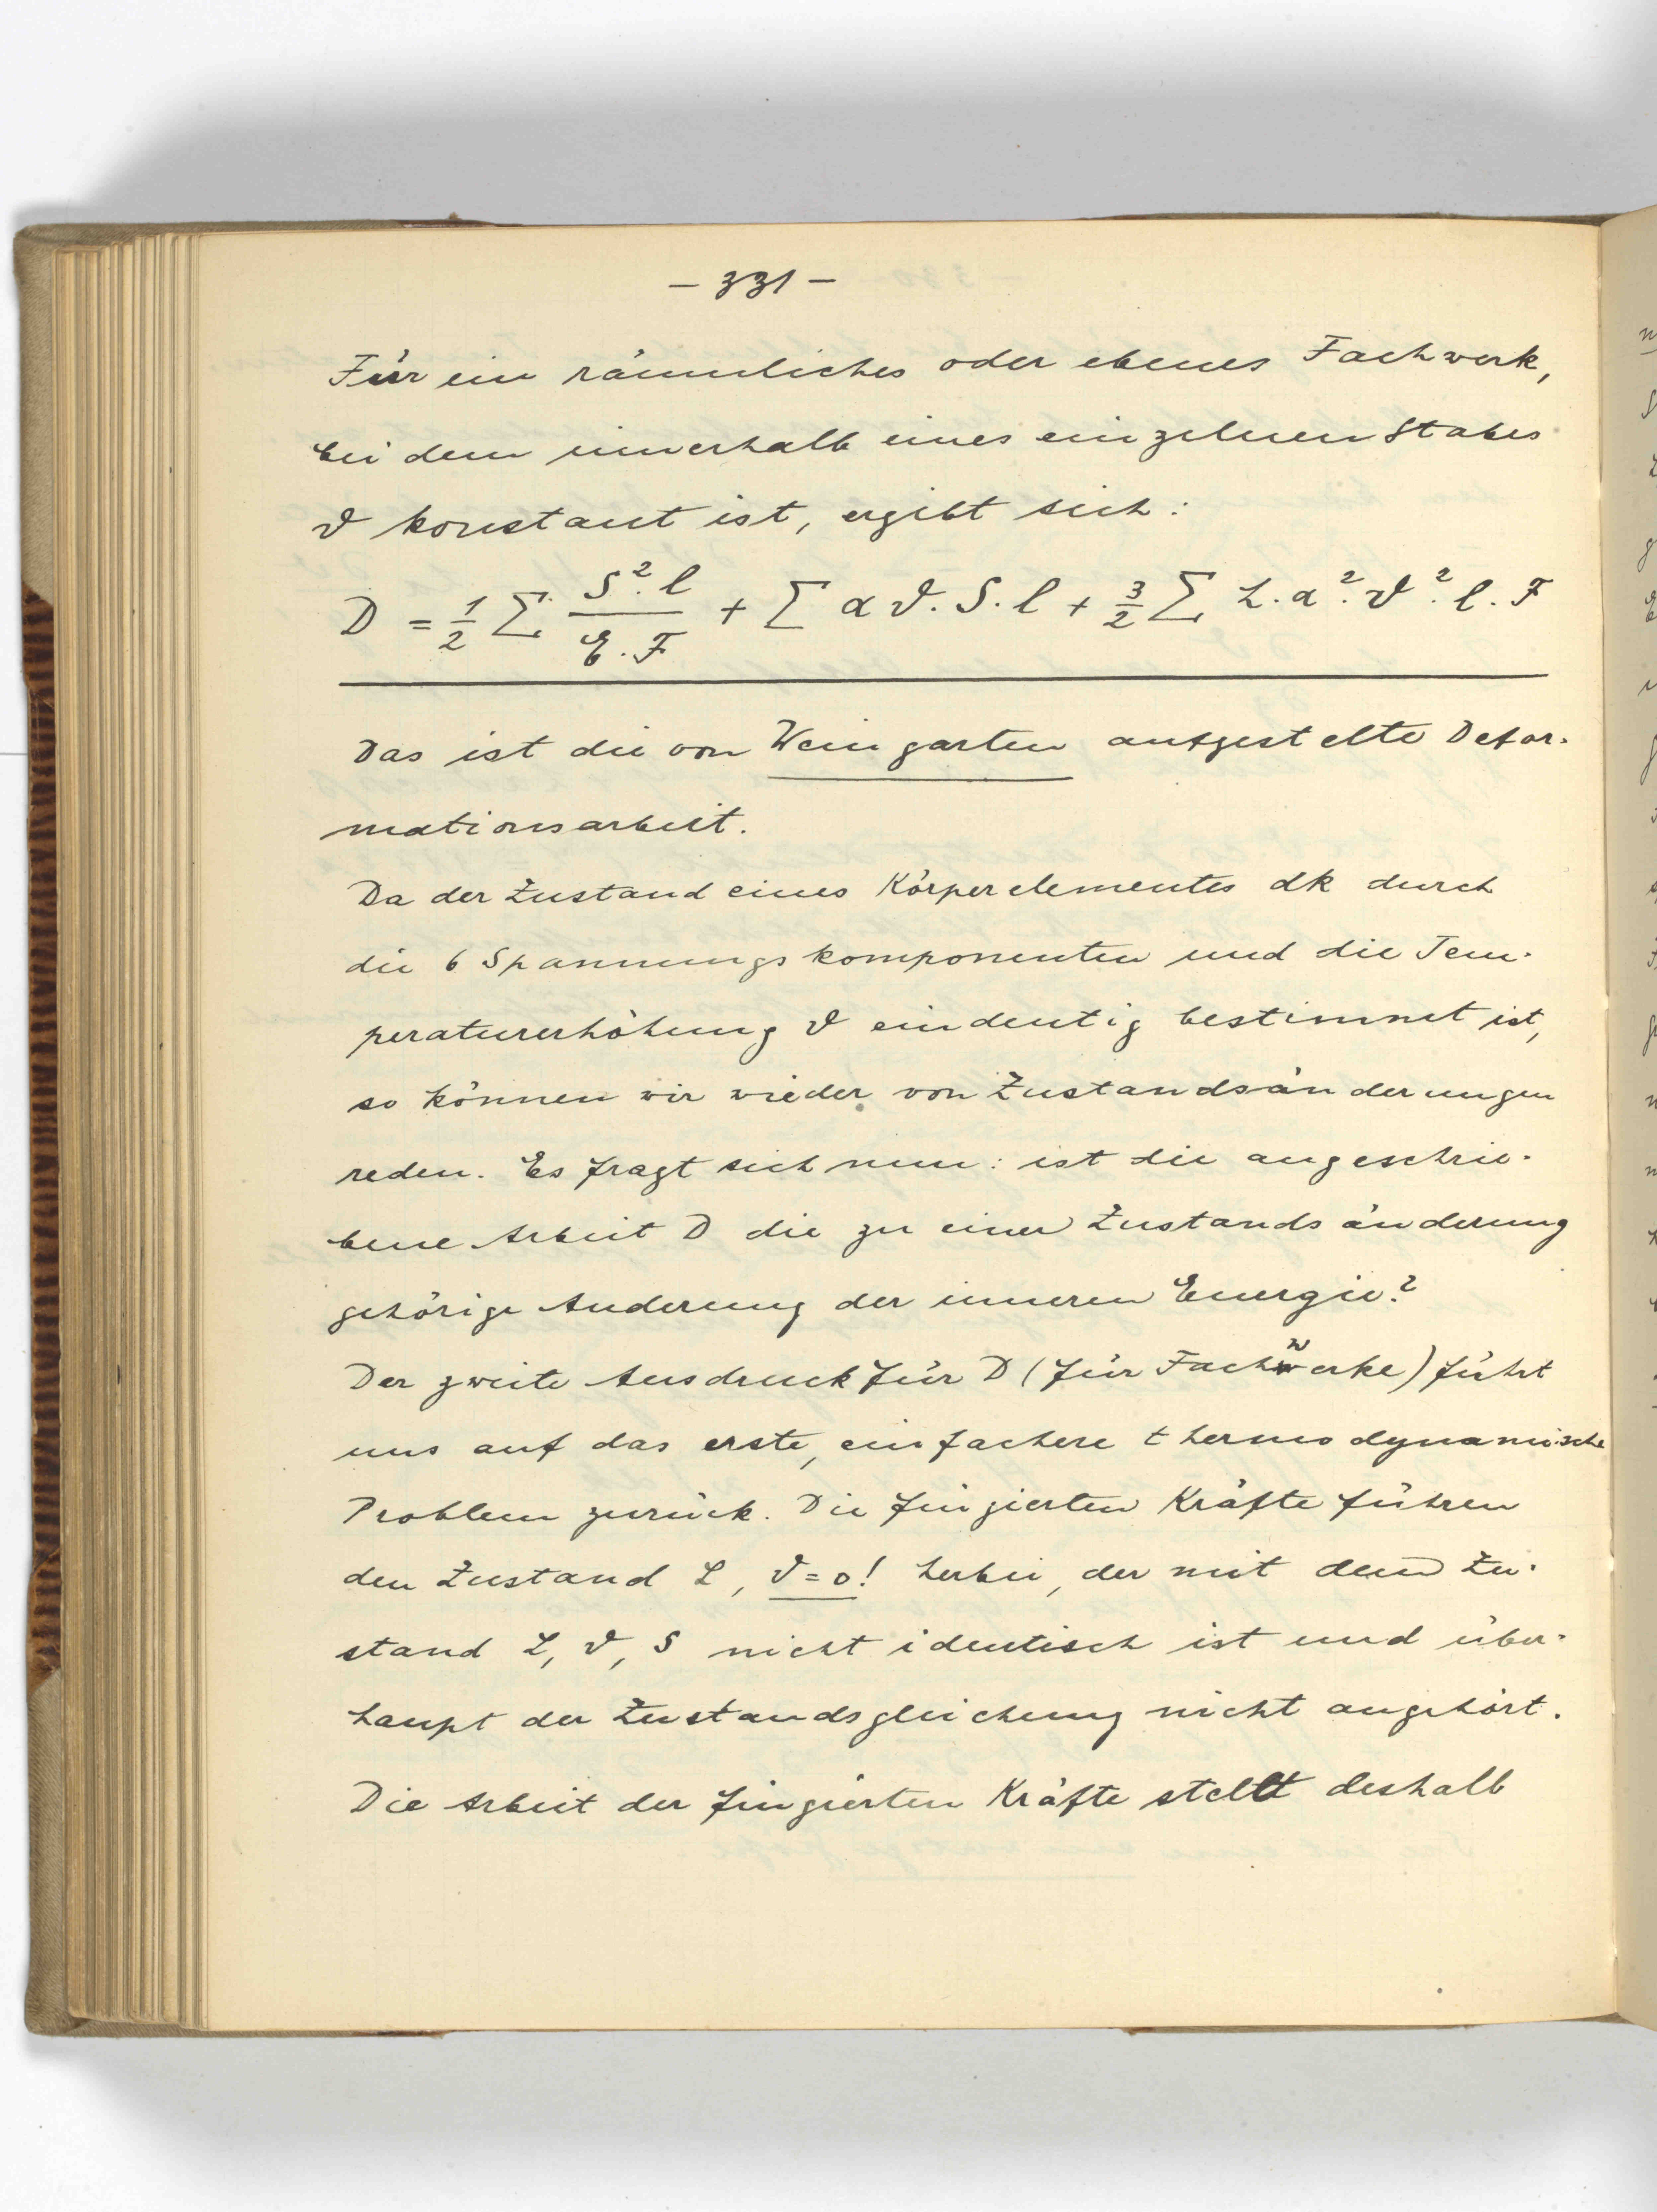 – 331 –
Für ein räumliches oder ebenes Fachwerk,
bei dem innerhalb eines einzelnen Stabes
ϑ konstant ist, ergibt sich:
D = 1/2 Σ S².l / E.F + Σ α ϑ. S. l + 3/2 Σ L. α². ϑ². l. F
Das ist die von Weingarten aufgestellte Defor-
mationsarbeit.
Da der Zustand eines Körperelementes dk durch
die 6 Spannungskomponenten und die Tem-
peraturerhöhung ϑ eindeutig bestimmt ist,
so können wir wieder von Zustandsänderungen
reden. Es fragt sich nun: ist die angeschrie-
bene Arbeit D die zu einer Zustandsänderung
gehörige Änderung der inneren Energie?
Der zweite Ausdruck für D (für Fachwerke) führt
uns auf das erste, einfachere thermodynamische
Problem zurück. Die fingierten Kräfte führen
den Zustand L, ϑ=0! herbei, der mit dem Zu-
stand L, ϑ, S nicht identisch ist und über-
haupt der Zustandsgleichung nicht angehört.
Die Arbeit der fingierten Kräfte stellt deshalb